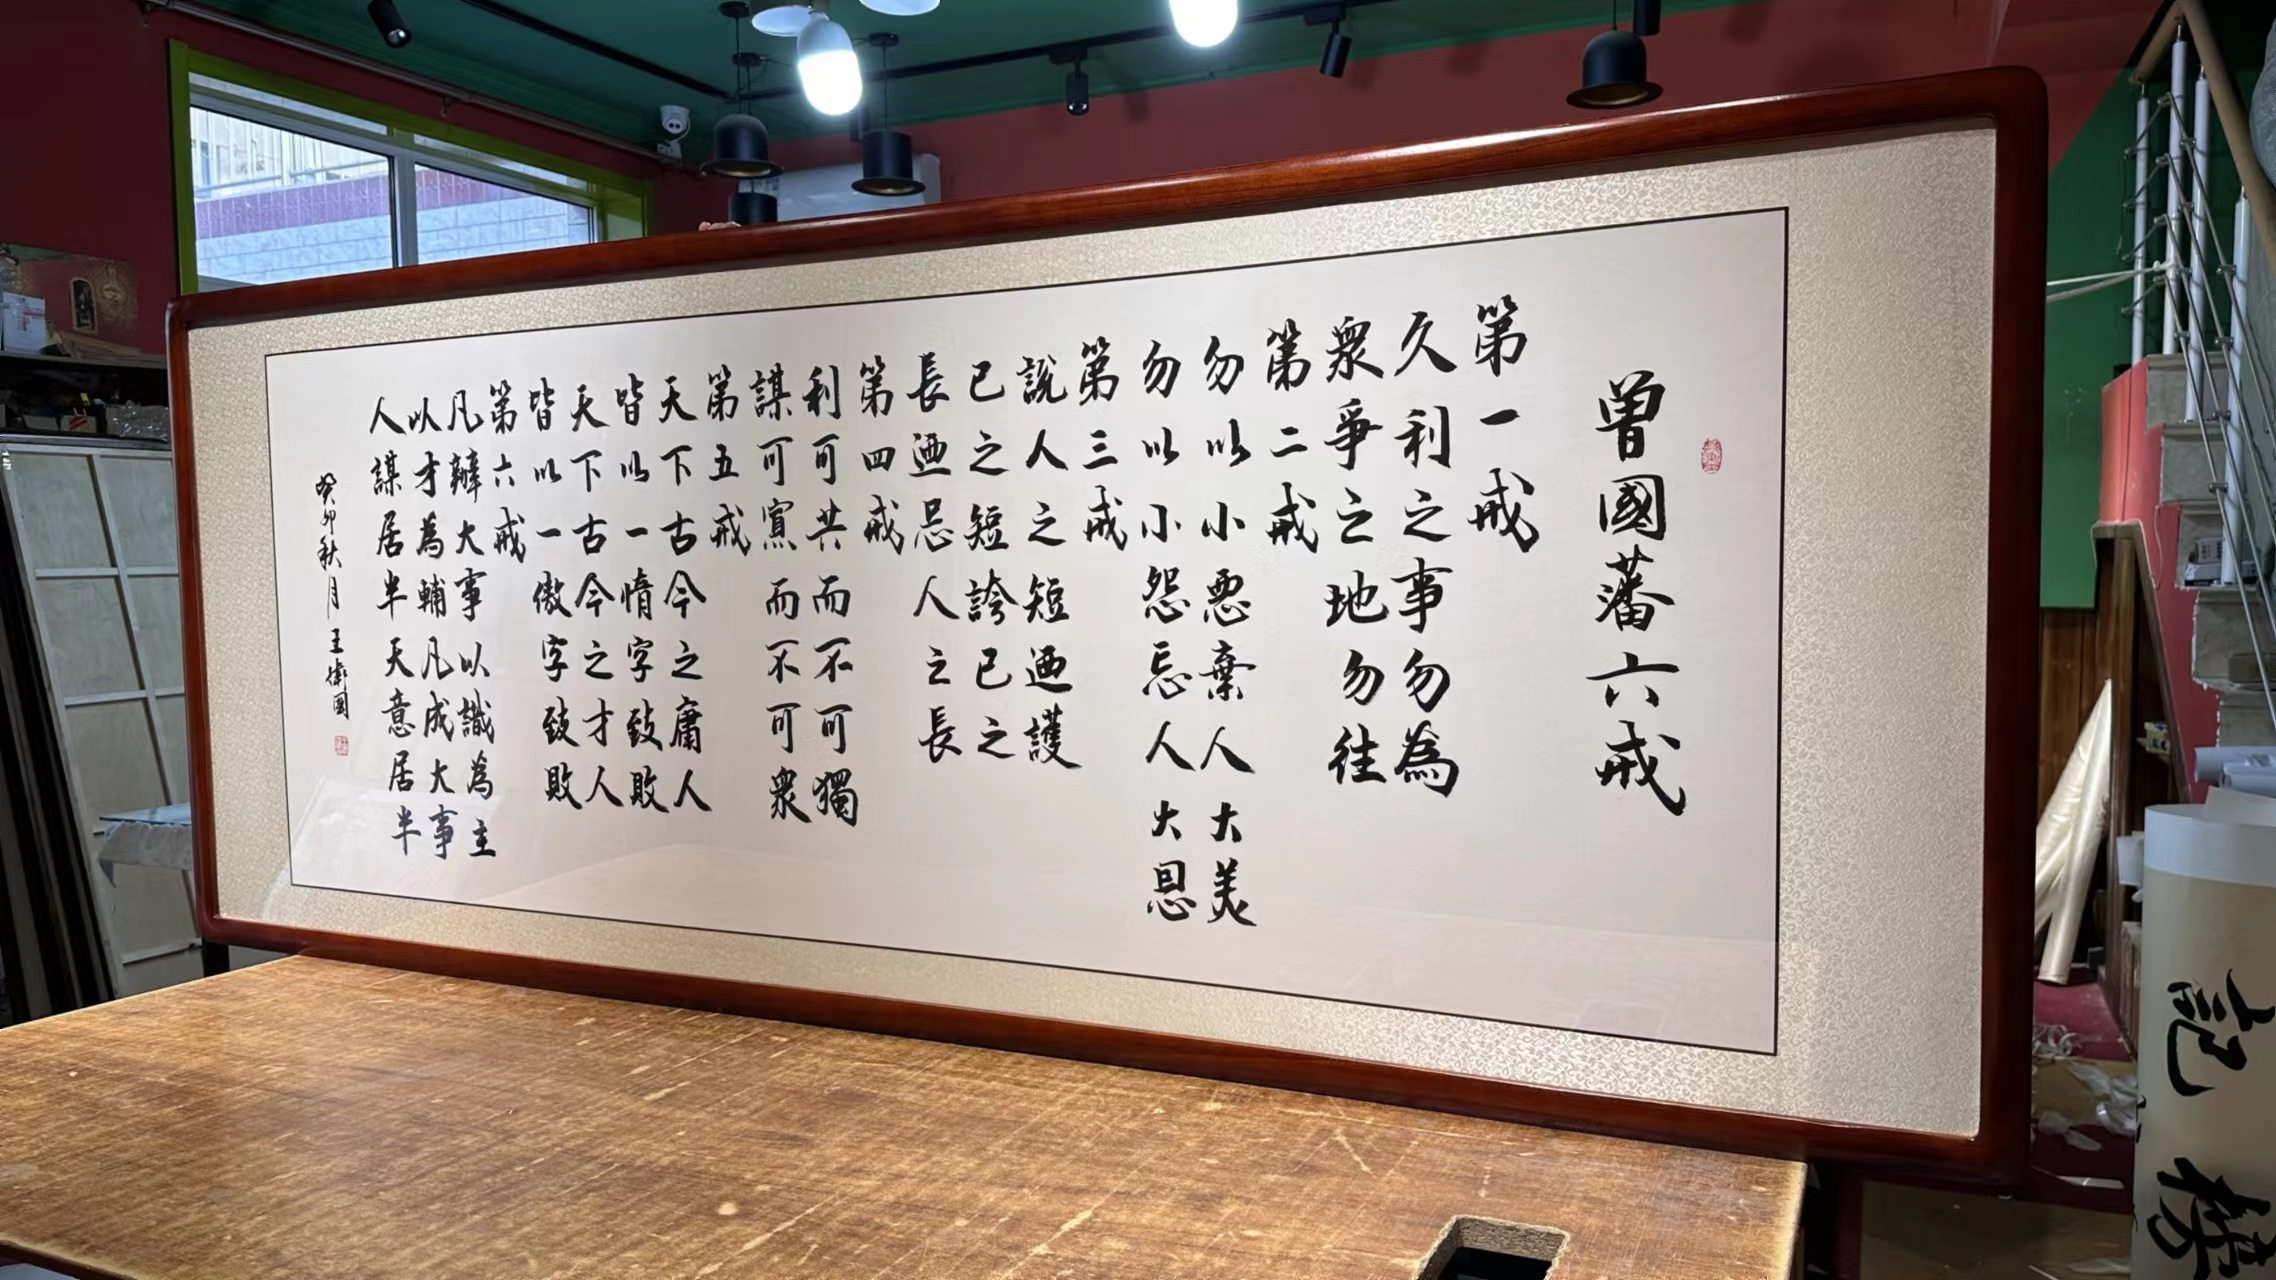 曾國藩六戒
第一戒
久利之事勿為
衆爭之地勿往
第二戒
勿以小悪棄人大美
勿以小怨忘人大恩
第三戒
説人之短迺護
已之短誇已之
長迺忌人之長
第四戒
利可共而不可獨
謀可寡而不可衆
第五戒
天下古今之庸人
皆以一惰字致敗
天下古今之才人
皆以一傲字致敗
第六戒
凡辦大事以識為主
以才為輔凡成大事
人謀居半天意居半
癸卯秋月 王衛國
記